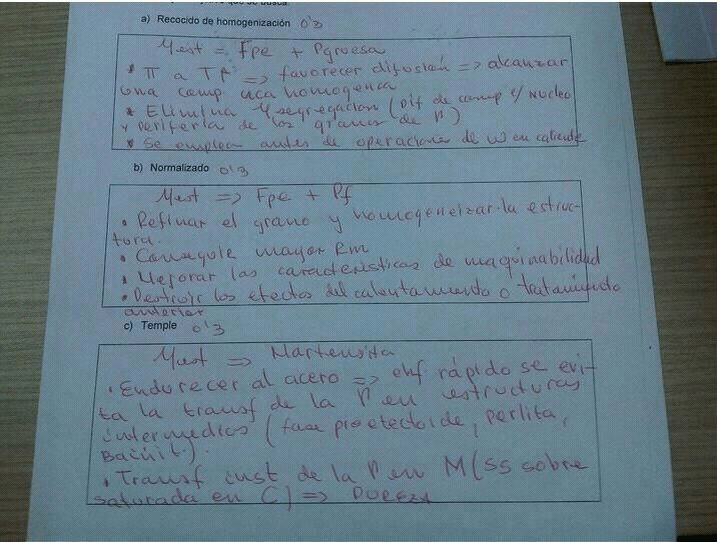 que se busca.
a) Recocido de homogenización 0'3
γest = Fpe + Pgruesa
• TT a Tª ⇒ favorecer difusión ⇒ alcanzar
una comp. qca homogénea
• Elimina segregación (Dif de comp e/ núcleo
y periferia de los granos de
• Se emplea antes de operaciones de ω en caliente
b) Normalizado 0'3
γest ⇒ Fpe + Pf
• Refinar el grano y homogeneizar la estruc-
tura.
• Conseguir mayor Rm
• Mejorar las características de maquinabilidad
• Destruir los efectos del calentamiento o tratamiento
anterior
c) Temple 0'3
γest ⇒ Martensita
• Endurecer al acero ⇒ enf rápido se evi-
ta la transf de la Γ en estructuras
intermedios (fase proeutectoide, perlita,
Bainit.).
• Transf inst de la Γ en M (SS sobre
saturada en C) ⇒ DUREZA